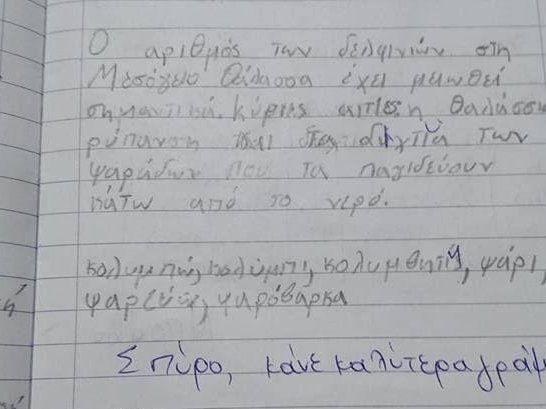 Ο αριθμός των δελφινιών στη
Μεσόγειο θάλασσα έχει μειωθεί
σημαντικά. Κύριες αιτίες η θαλάσσ
ρύπανση και τα δίχτυα των
ψαράδων που τα παγιδεύουν
κάτω από το νερό.
κολυμπώ, κολύμπι, κολυμβητής, ψάρι,
ψαρεύω, ψαρόβαρκα
Σπύρο, κάνε καλύτερα γράμ